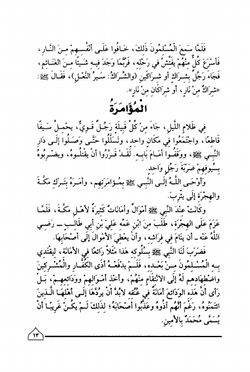 فَلَمَّا سَمِعَ الْمُسْلِمُونَ ذَلِكَ، خَافُوا عَلَى أَنْفُسِهِمْ مِنَ النَّارِ،
فَأَسْرَعَ كُلٌّ مِنْهُمْ يُفَتِّشُ فِي رَحْلِهِ، فَرُبَّمَا وَجَدَ فِيهِ شَيْئًا مِنَ الْغَنَائِمِ،
فَجَاءَ رَجُلٌ بِشِرَاكٍ أَوْ شِرَاكَيْنِ (وَالشِّرَاكُ: سَيْرُ النَّعْلِ)، فَقَالَ ﷺ:
«شِرَاكٌ مِنْ نَارٍ، أَوْ شِرَاكَانِ مِنْ نَارٍ».
الْمُؤَامَرَةُ
فِي ظَلَامِ اللَّيْلِ، جَاءَ مِنْ كُلِّ قَبِيلَةٍ رَجُلٌ قَوِيٌّ، يَحْمِلُ سَيْفًا
قَاطِعًا، وَاجْتَمَعُوا فِي مَكَانٍ وَاحِدٍ، وَتَسَلَّلُوا حَتَّى وَصَلُوا إِلَى دَارِ
النَّبِيِّ ﷺ، وَوَقَفُوا أَمَامَ بَابِهِ. لَقَدْ قَرَّرُوا أَنْ يَقْتُلُوهُ، وَيَضْرِبُوهُ
بِسُيُوفِهِمْ ضَرْبَةَ رَجُلٍ وَاحِدٍ.
وَأَوْحَى اللهُ إِلَى النَّبِيِّ ﷺ بِمُؤَامَرَتِهِمْ، وَأَمَرَهُ بِتَرْكِ مَكَّةَ
وَالْهِجْرَةِ إِلَى يَثْرِبَ.
وَكَانَتْ عِنْدَ النَّبِيِّ ﷺ أَمْوَالٌ وَأَمَانَاتٌ كَثِيرَةٌ لِأَهْلِ مَكَّةَ، فَلَمَّا
عَزَمَ عَلَى الْهِجْرَةِ، طَلَبَ مِنِ ابْنِ عَمِّهِ عَلِيِّ بْنِ أَبِي طَالِبٍ ـ رَضِيَ
اللهُ عَنْهُ ـ أَنْ يَنَامَ فِي فِرَاشِهِ، وَأَنْ يُعْطِيَ الْأَمْوَالَ إِلَى أَصْحَابِهَا.
فَضَرَبَ لَنَا النَّبِيُّ ﷺ بِسُلُوكِهِ هَذَا مَثَلًا رَائِعًا فِي الْأَمَانَةِ، لِيَقْتَدِيَ
بِهِ الْمُسْلِمُونَ مِنْ بَعْدِهِ، فَلَمْ يَدْفَعْهُ أَذَى الْكُفَّارِ وَالْمُشْرِكِينَ
وَاضْطِهَادُهُمْ لَهُ إِلَى الِانْتِقَامِ مِنْهُمْ، وَأَخْذِ أَمْوَالِهِمْ وَوَدَائِعِهِمْ، بَلْ
رَأَى أَنَّ هَذِهِ الْوَدَائِعَ أَمَانَةٌ فِي عُنُقِهِ لَابُدَّ أَنْ يَرُدَّهَا إِلَى أَهْلِهَا الَّذِينَ
ائْتَمَنُوهُ، رَغْمَ أَنَّهُمْ آذَوْهُ وَعَذَّبُوا أَصْحَابَهُ؛ لِذَلِكَ لَمْ يَكُنْ غَرِيبًا أَنْ
يُسَمَّى مُحَمَّدٌ بِالْأَمِينِ.
١٣